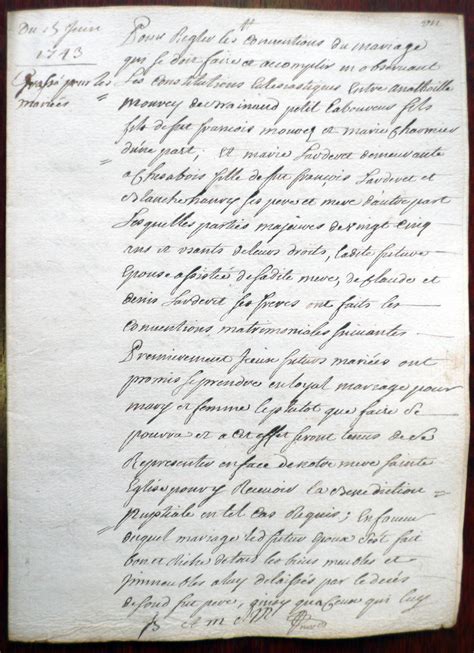 Du 15 Juin
1743
Pour Regler les conventions du mariage
qui se doit faire et accomplir en observant
Les constitutions Eclesiastiques Entre Anathoille
mouvey de petit Laboureur fils
fils de fut françois mouvey et marie
d'une part; et marie Larderet demeurante
a fille de fut françois Larderet et
Blanche ses pere et mere d'autre part
Lesquelles parties majeures de vingt cinq
ans et usants de leurs droits, ladite future
Epouse assistée de sadite mere, de Claude et
denis Larderet ses freres ont faits les
Conventions matrimoniales suivantes
Premierement Iceux futurs mariées ont
promis se prendre en loyal mariage pour
mary et femme le plutot que faire se
pourra et a cet effet seront tenus de se
Representer en face de notre mere sainte
Eglise pour y Recevoir la Benediction
Nuptiale en tel cas Requis; En faveur
duquel mariage led. futur Epoux s'est fait
bon et Riche de tous les biens meubles et
immeubles a luy delaissés par le deces
defund fut pere, quoy que Ceux qui luy